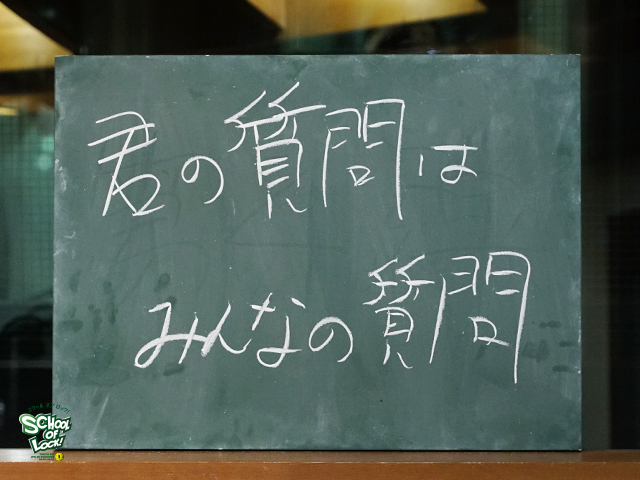 君の質問は
みんなの質問
SCHOOL
OF
LOCK!